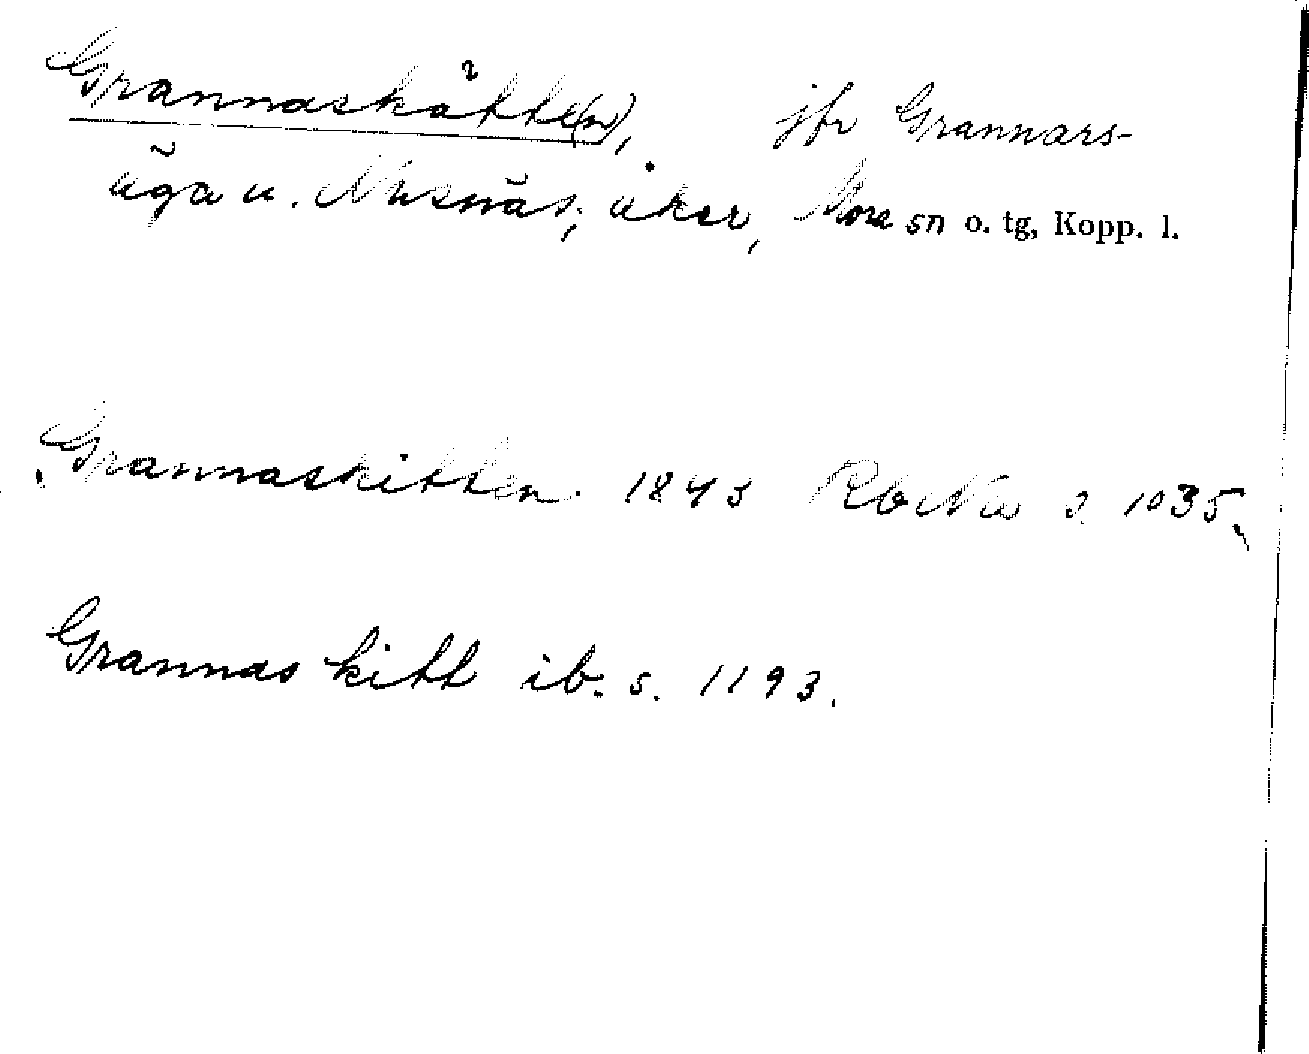 Grannaskåtte(n), jfr Grannars-
äga u. Nusnäs; åker, Mora sn o. tg, Kopp. l.
Grannaskitten 1843 Rb Nu s. 1035.
Grannas kitt ib. s. 1193.